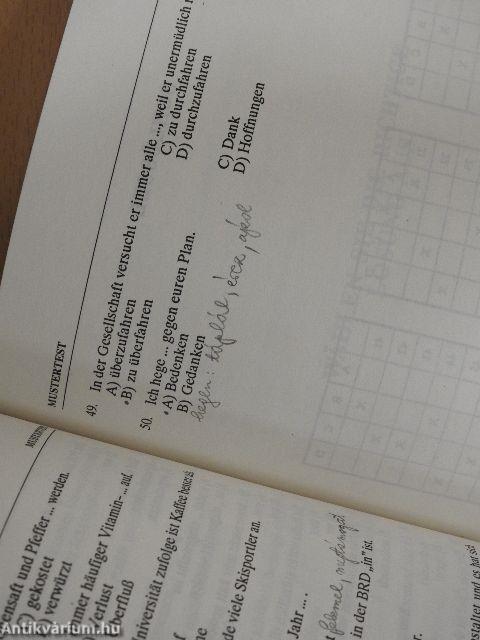 MUSTERTEST
49. In der Gesellschaft versucht er immer alle ..., weil er unermüdlich
A) überzufahren
B) zu überfahren
C) zu durchfahren
D) durchzufahren
50. Ich hege ... gegen euren Plan.
A) Bedenken
B) Gedanken
C) Dank
D) Hoffnungen
hegen: táplál, érez, ápol
und Pfeffer ... werden.
gekostet
verwürzt
häufiger Vitamin- ... auf.
zufolge ist Kaffee besser als
viele Skisportler an.
Jahr ... .
in der BRD „in" ist.
und es hat sich
Antikvárium.hu